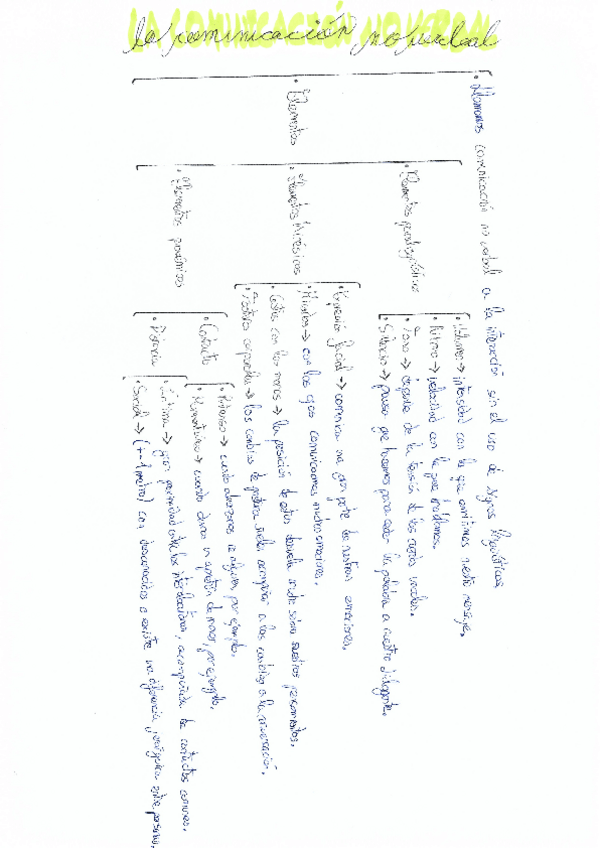 LA COMUNICACIÓN NO VERBAL
la comunicación no verbal
• Llamamos comunicación no verbal a la interacción sin el uso de signos lingüísticos.
• Elementos
• Elementos paralingüísticos
• Volumen → intensidad con la que emitimos nuestro mensaje.
• Ritmo → velocidad con la que hablamos.
• Tono → depende de la tensión de las cuerdas vocales.
• Silencio → pausa que hacemos para ceder la palabra a nuestro
• Elementos kinésicos
• Expresión facial → comunica una gran parte de nuestras emociones.
• Miradas → con los ojos comunicamos muchas emociones.
• Gestos con las manos → la posición de estas desvela mucho sobre nuestros pensamientos.
• Postura corporal → los cambios de postura suelen acompañar a los cambios a la conversación.
• Elementos proxémicos
• Contacto
• Intenso → cuando abrazamos a alguien, por ejemplo.
• Momentáneo → cuando damos un apretón de manos, por ejemplo.
• Distancia
• Íntima → gran proximidad entre los interlocutores, acompañada de contactos comunes.
• Social → (+-1 metro) con desconocidos o existe una diferencia jerárquica entre personas.